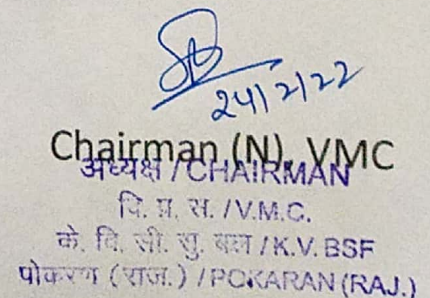 24/2/22
Chairman (N), VMC
अध्यक्ष / CHAIRMAN
वि. प्र. स. / V.M.C.
के. वि. सी. सु. बल / K.V. BSF
पोकरण (राज.) / POKARAN (RAJ.)